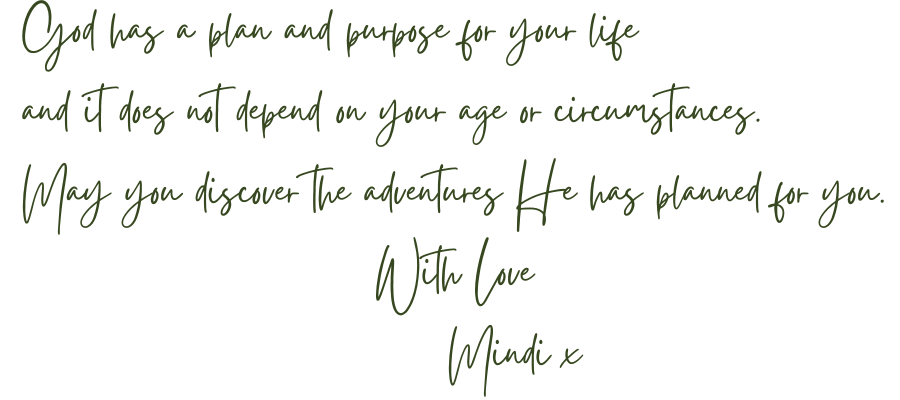 God has a plan and purpose for your life
and it does not depend on your age or circumstances.
May you discover the adventures He has planned for you.
With Love
Mindi x